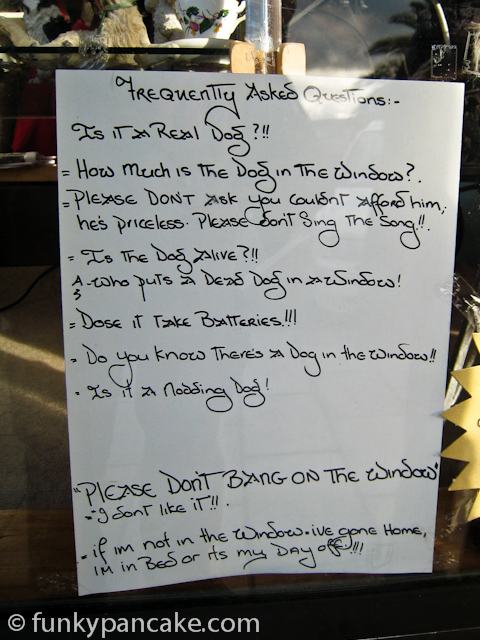 Frequently Asked Questions:-
Is it a Real Dog?!!
= How Much is the Dog in the Window?.
= Please Don't Ask you couldnt Afford him,
he's priceless. Please don't Sing the Song!!.
= Is the Dog Alive?!!
A - who puts a Dead Dog in a Window!
= Dose it take Batteries.!!!
= Do you know there's a Dog in the window!!
- Is it a Nodding Dog!
"Please Don't Bang on the Window"
= I dont like it!!.
= if im not in the window. ive gone Home,
im in Bed or its my Day off!!!
© funkypancake.com